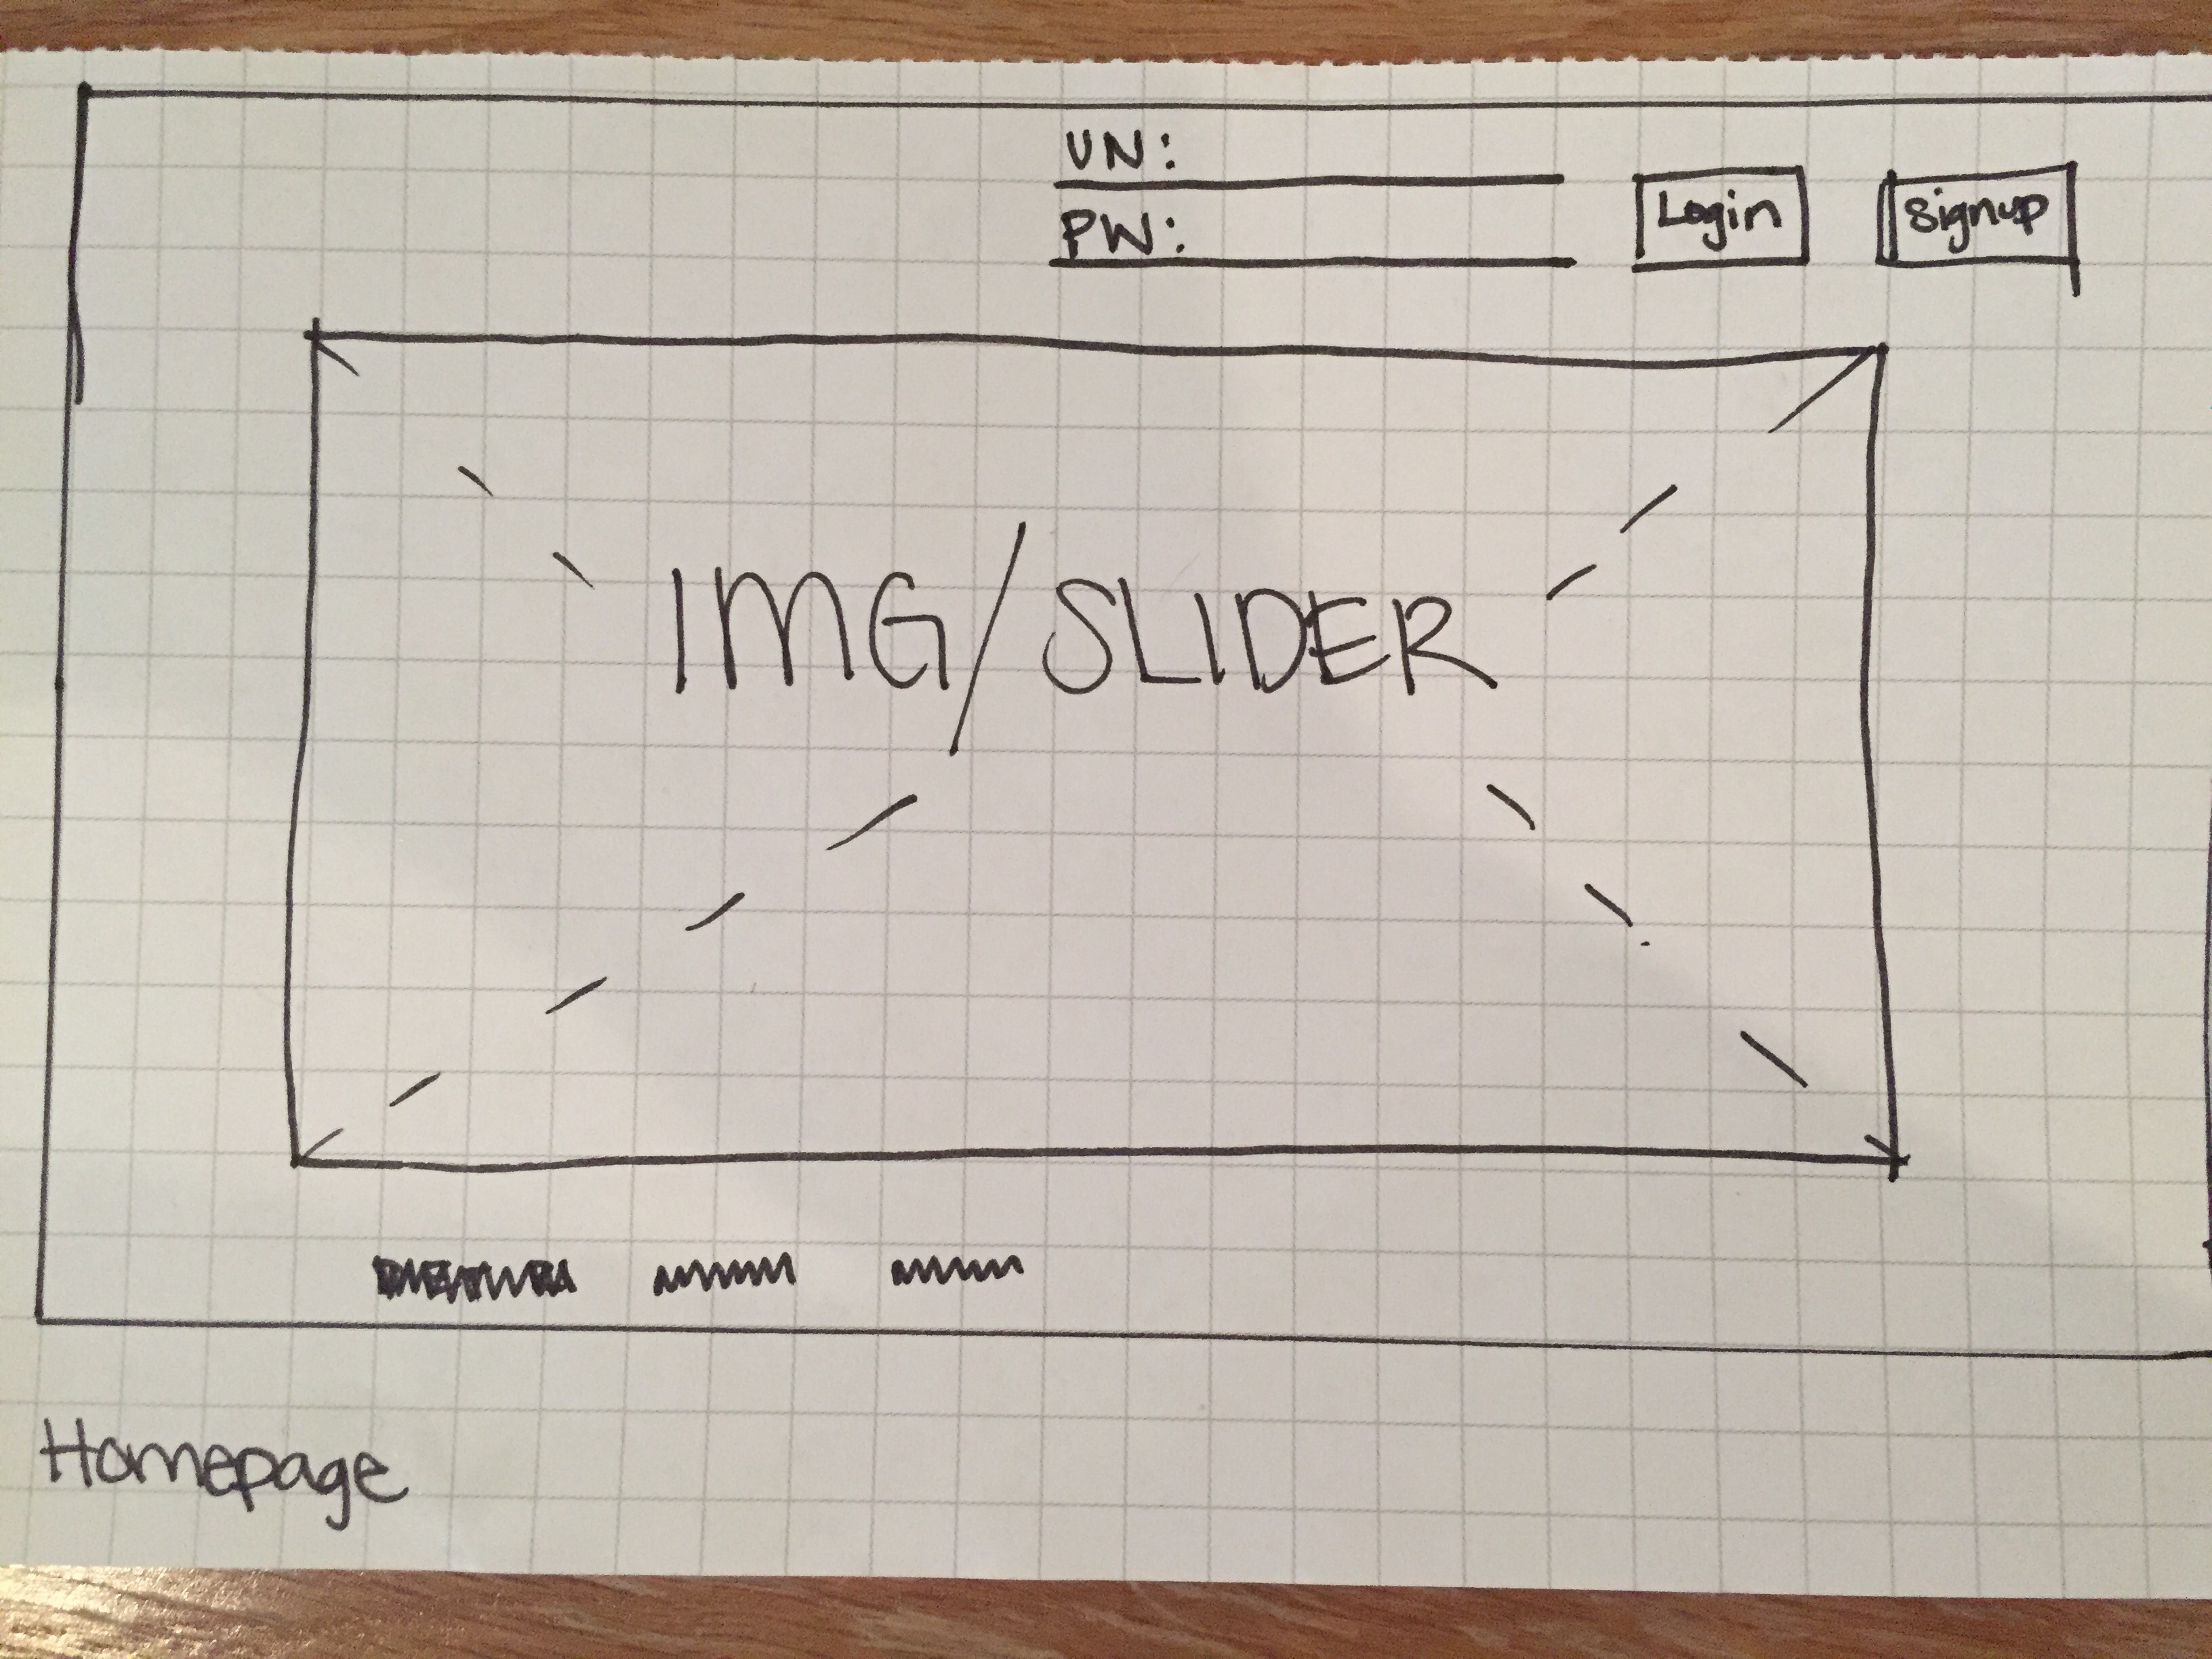 UN:
PW:
Login
Signup
IMG/SLIDER
Homepage